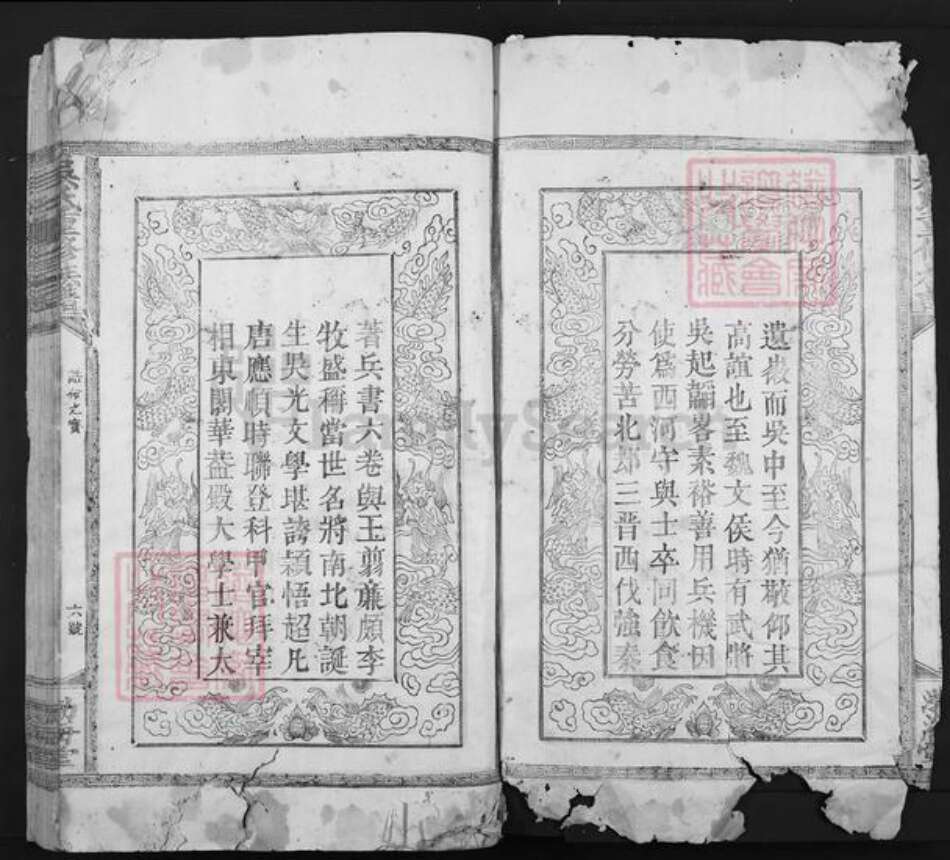 遺徽而吳中至今猶敬仰其
高誼也至魏文侯時有武將
吳起韜畧素裕善用兵機因
使爲西河守與士卒同飲食
分勞苦北却三晋西伐強秦
著兵書六卷與王翦廉頗李
牧盛稱當世名將南北朝誕
生吳光文學堪誇穎悟超凡
唐應順時聯登科甲官拜宰
相東閣華蓋殿大學士兼太
六號
FamilySearch